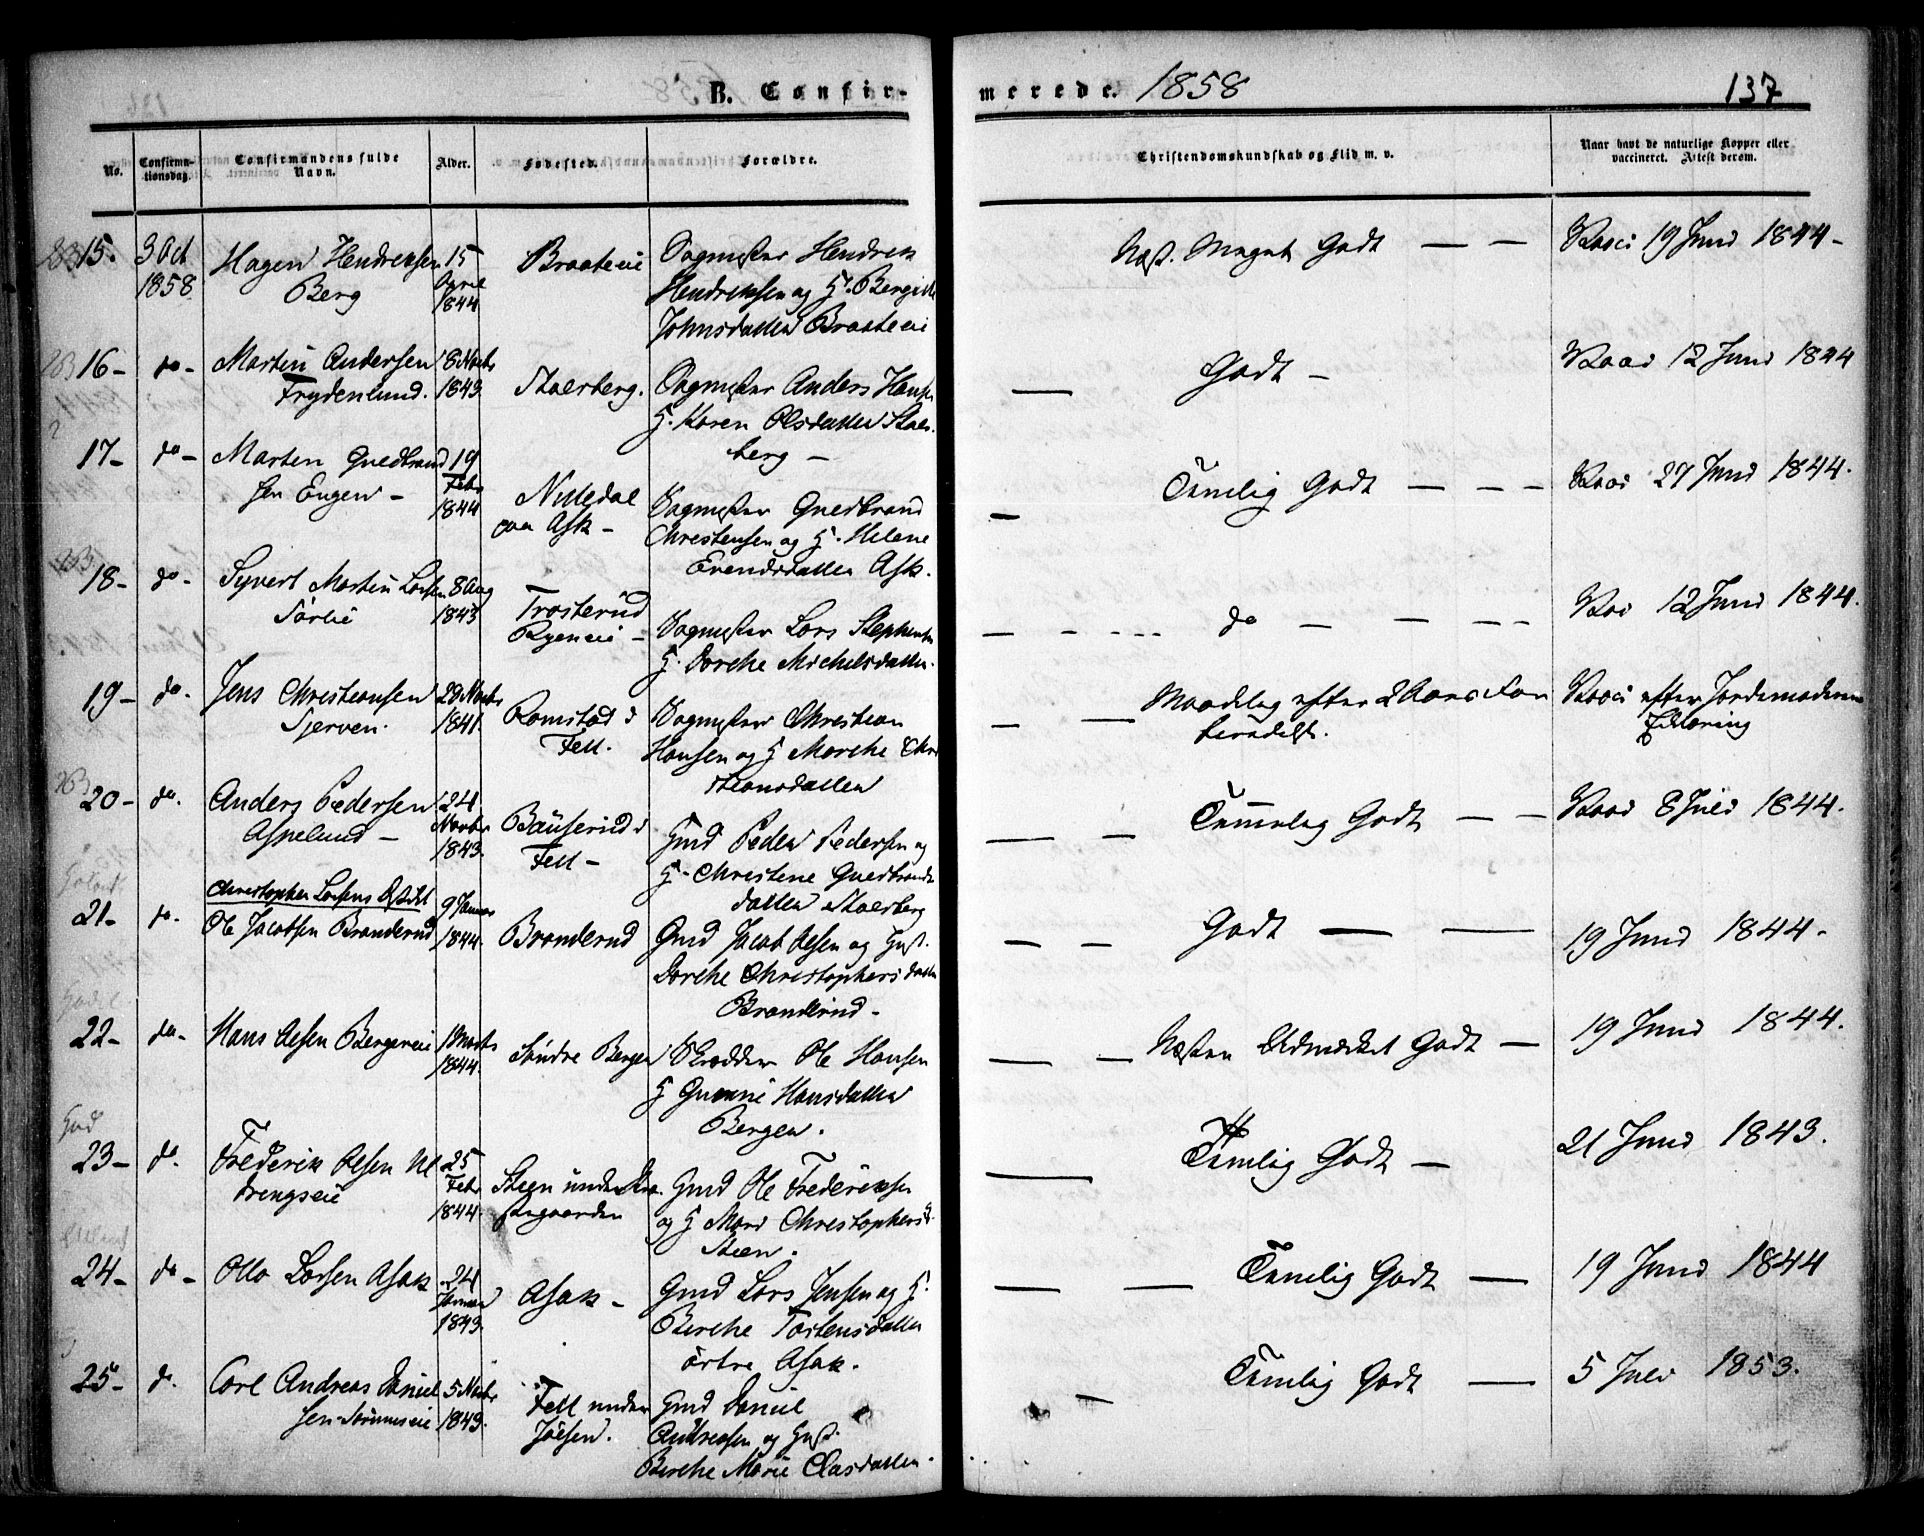 B. Confir-
merede. 1858
137
No.
Confirma-
tionsdag.
Confirmandens fulde
Navn.
Alder.
Fødested.
Forældre.
Christendomskundskab og Flid m. v.
Naar havt de naturlige Kopper eller
vaccineret. Attest derom.
15. 3 Oct
1858
Hagen Hendreksen
Berg
15
April
1844
Braateie
Hendrek
Hendreksen og H. Bergitte
Johnsdatter Braateeie
Næst. Meget Godt — —
19 Juni 1844 -
16 - do -
Martin Andersen
Frydenlund.
8 Novbr
1843.
Skaerberg.
Anders Hansen
H. Karen Olsdatter Skaer
berg -
Godt -
12 Juni 1844
17 - do -
Marten Guldbrand
sen Engen -
19
Febr
1844
Nittedal
paa Ask -
Guldbrand
Christensen og H. Helene
Evendsdatter Ask.
Temlig Godt — — —
27 Juni 1844.
18 - do -
Syvert Martin Larsen
Sørlie
8 Aug
1843
Trosterud
Ryeneie -
Lars Stephensen
H. Dorthe Michelsdatter.
do — — — —
12 Juni 1844.
19 - do.
Jens Christiansen
Tjerven.
20 Novbr
1841.
Romstad i
Fett.
Christian
Hansen og H Marthe Chri
stiansdatter
Maadelig efter 2 Aars For
beredelse.
efter Jordemoderens
Erklæring
20 - do.
Anders Pedersen
Aspelund -
24
Novbr
1843.
Bauserud i
Fett -
Gmd Peder Pedersen og
H. Christine Guldbrands
datter Skaerberg
Temmelig Godt — —
8 Juli 1844.
21 - do.
Ole Jacobsen Branderud
9 Januar
1844.
Branderud
Gmd Jacob Olsen og Hust.
Dorthe Christophersdatter
Branderud -
Godt — —
19 Juni 1844.
22 - do -
Hans Olsen Bergereie
1 Marts
1844.
Søndre Bergen
Ole Hansen
H Gunnie Hansdatter
Bergen.
Næsten Udmærket Godt —
19 Juni 1844.
23 - do.
Frederik Olsen
25
Febr
1844.
Steen under
Gmd Ole Frederiksen
og H Mari Christophersd.
Steen.
Temlig Godt —
21 Juni 1843.
24 - do -
Otto Larsen Asak
24
Januar
1843.
Asak -
Gmd Lars Jensen og H.
Berthe Torstensdatter
Asak.
Temlig Godt —
19 Juni 1844
25 - do.
Carl Andreas Daniel
sen
5 Novbr
1843.
Fett under
Gmd Daniel
Andreasen og Hust.
Berthe Marie Clasdatter.
Temlig Godt —
5 Juli 1853.